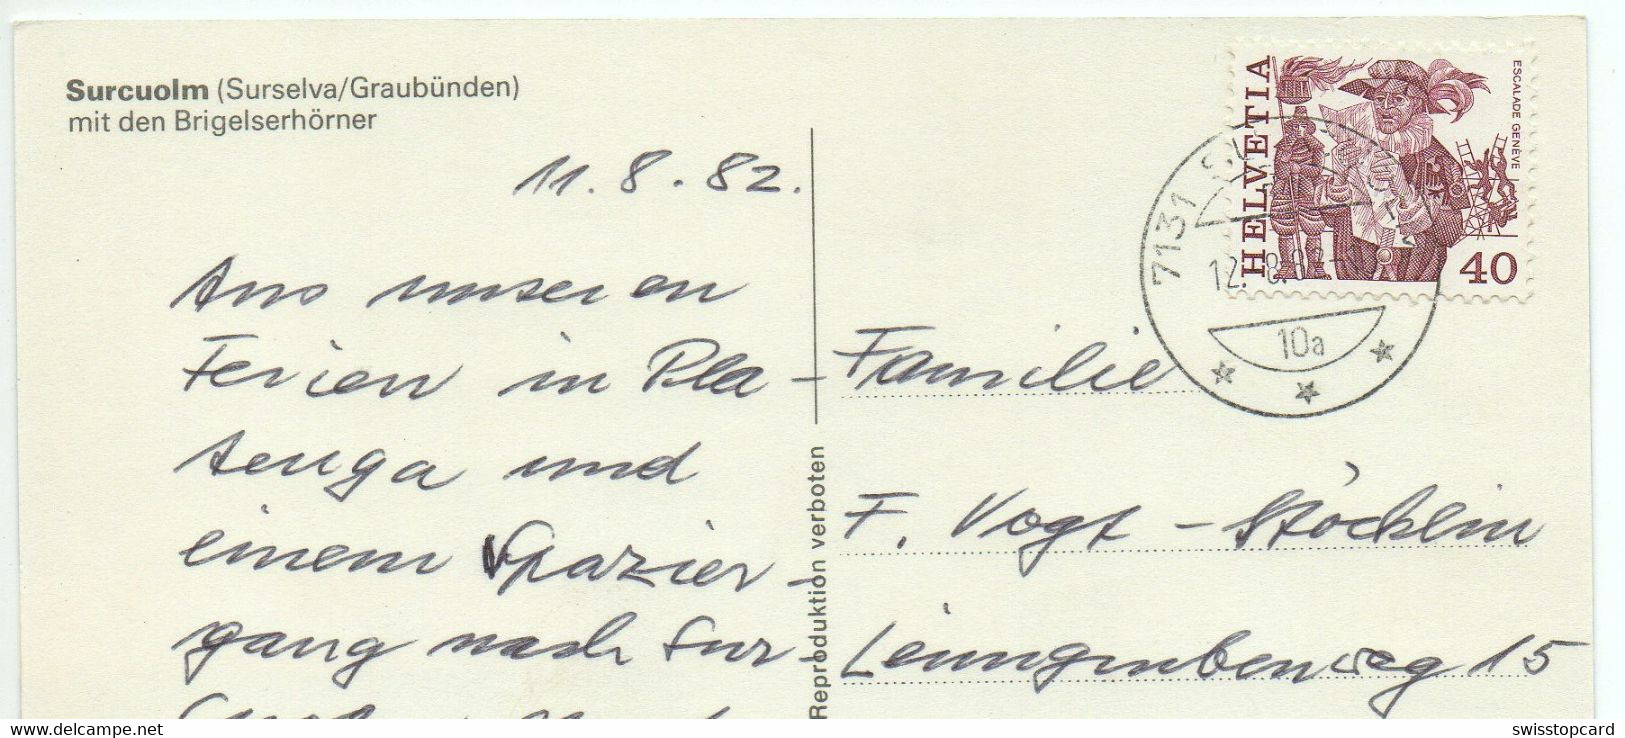 Surcuolm (Surselva/Graubünden)
mit den Brigelserhörner
11. 8. 82.
Aus unseren
Ferien in Pla-
tenga und
einem Spazier-
gang nach Sur
Reproduktion verboten
HELVETIA
ESCALADE GENÈVE
40
7131
12.-8.82
10a
Familie
F. Vogt-Stöcklin
Leimgrubenweg 15
www.delcampe.net
swisstopcard